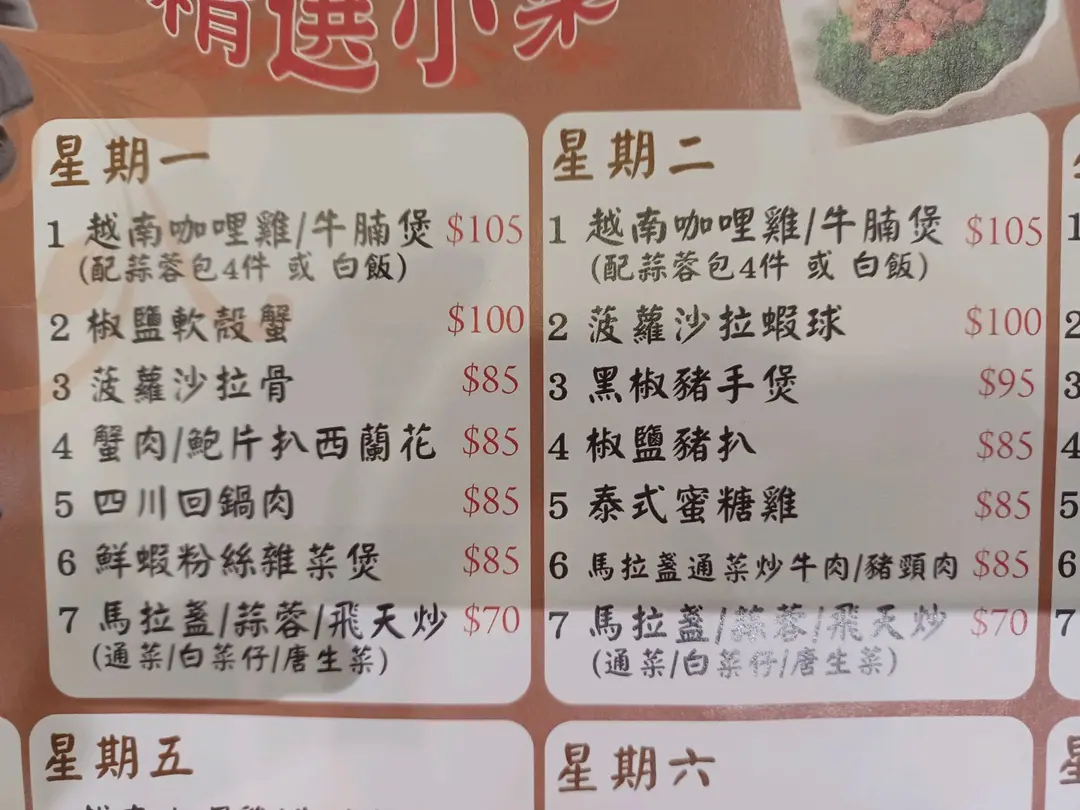 精選小菜
星期一
1 越南咖哩雞/牛腩煲 $105
(配蒜蓉包4件 或 白飯)
2 椒鹽軟殼蟹 $100
3 菠蘿沙拉骨 $85
4 蟹肉/鮑片扒西蘭花 $85
5 四川回鍋肉 $85
6 鮮蝦粉絲雜菜煲 $85
7 馬拉盞/蒜蓉/飛天炒 $70
(通菜/白菜仔/唐生菜)
星期二
1 越南咖哩雞/牛腩煲 $105
(配蒜蓉包4件 或 白飯)
2 菠蘿沙拉蝦球 $100
3 黑椒豬手煲 $95
4 椒鹽豬扒 $85
5 泰式蜜糖雞 $85
6 馬拉盞通菜炒牛肉/豬頸肉 $85
7 馬拉盞/蒜蓉/飛天炒 $70
(通菜/白菜仔/唐生菜)
1
2
3
4
5
6
7
星期五
星期六